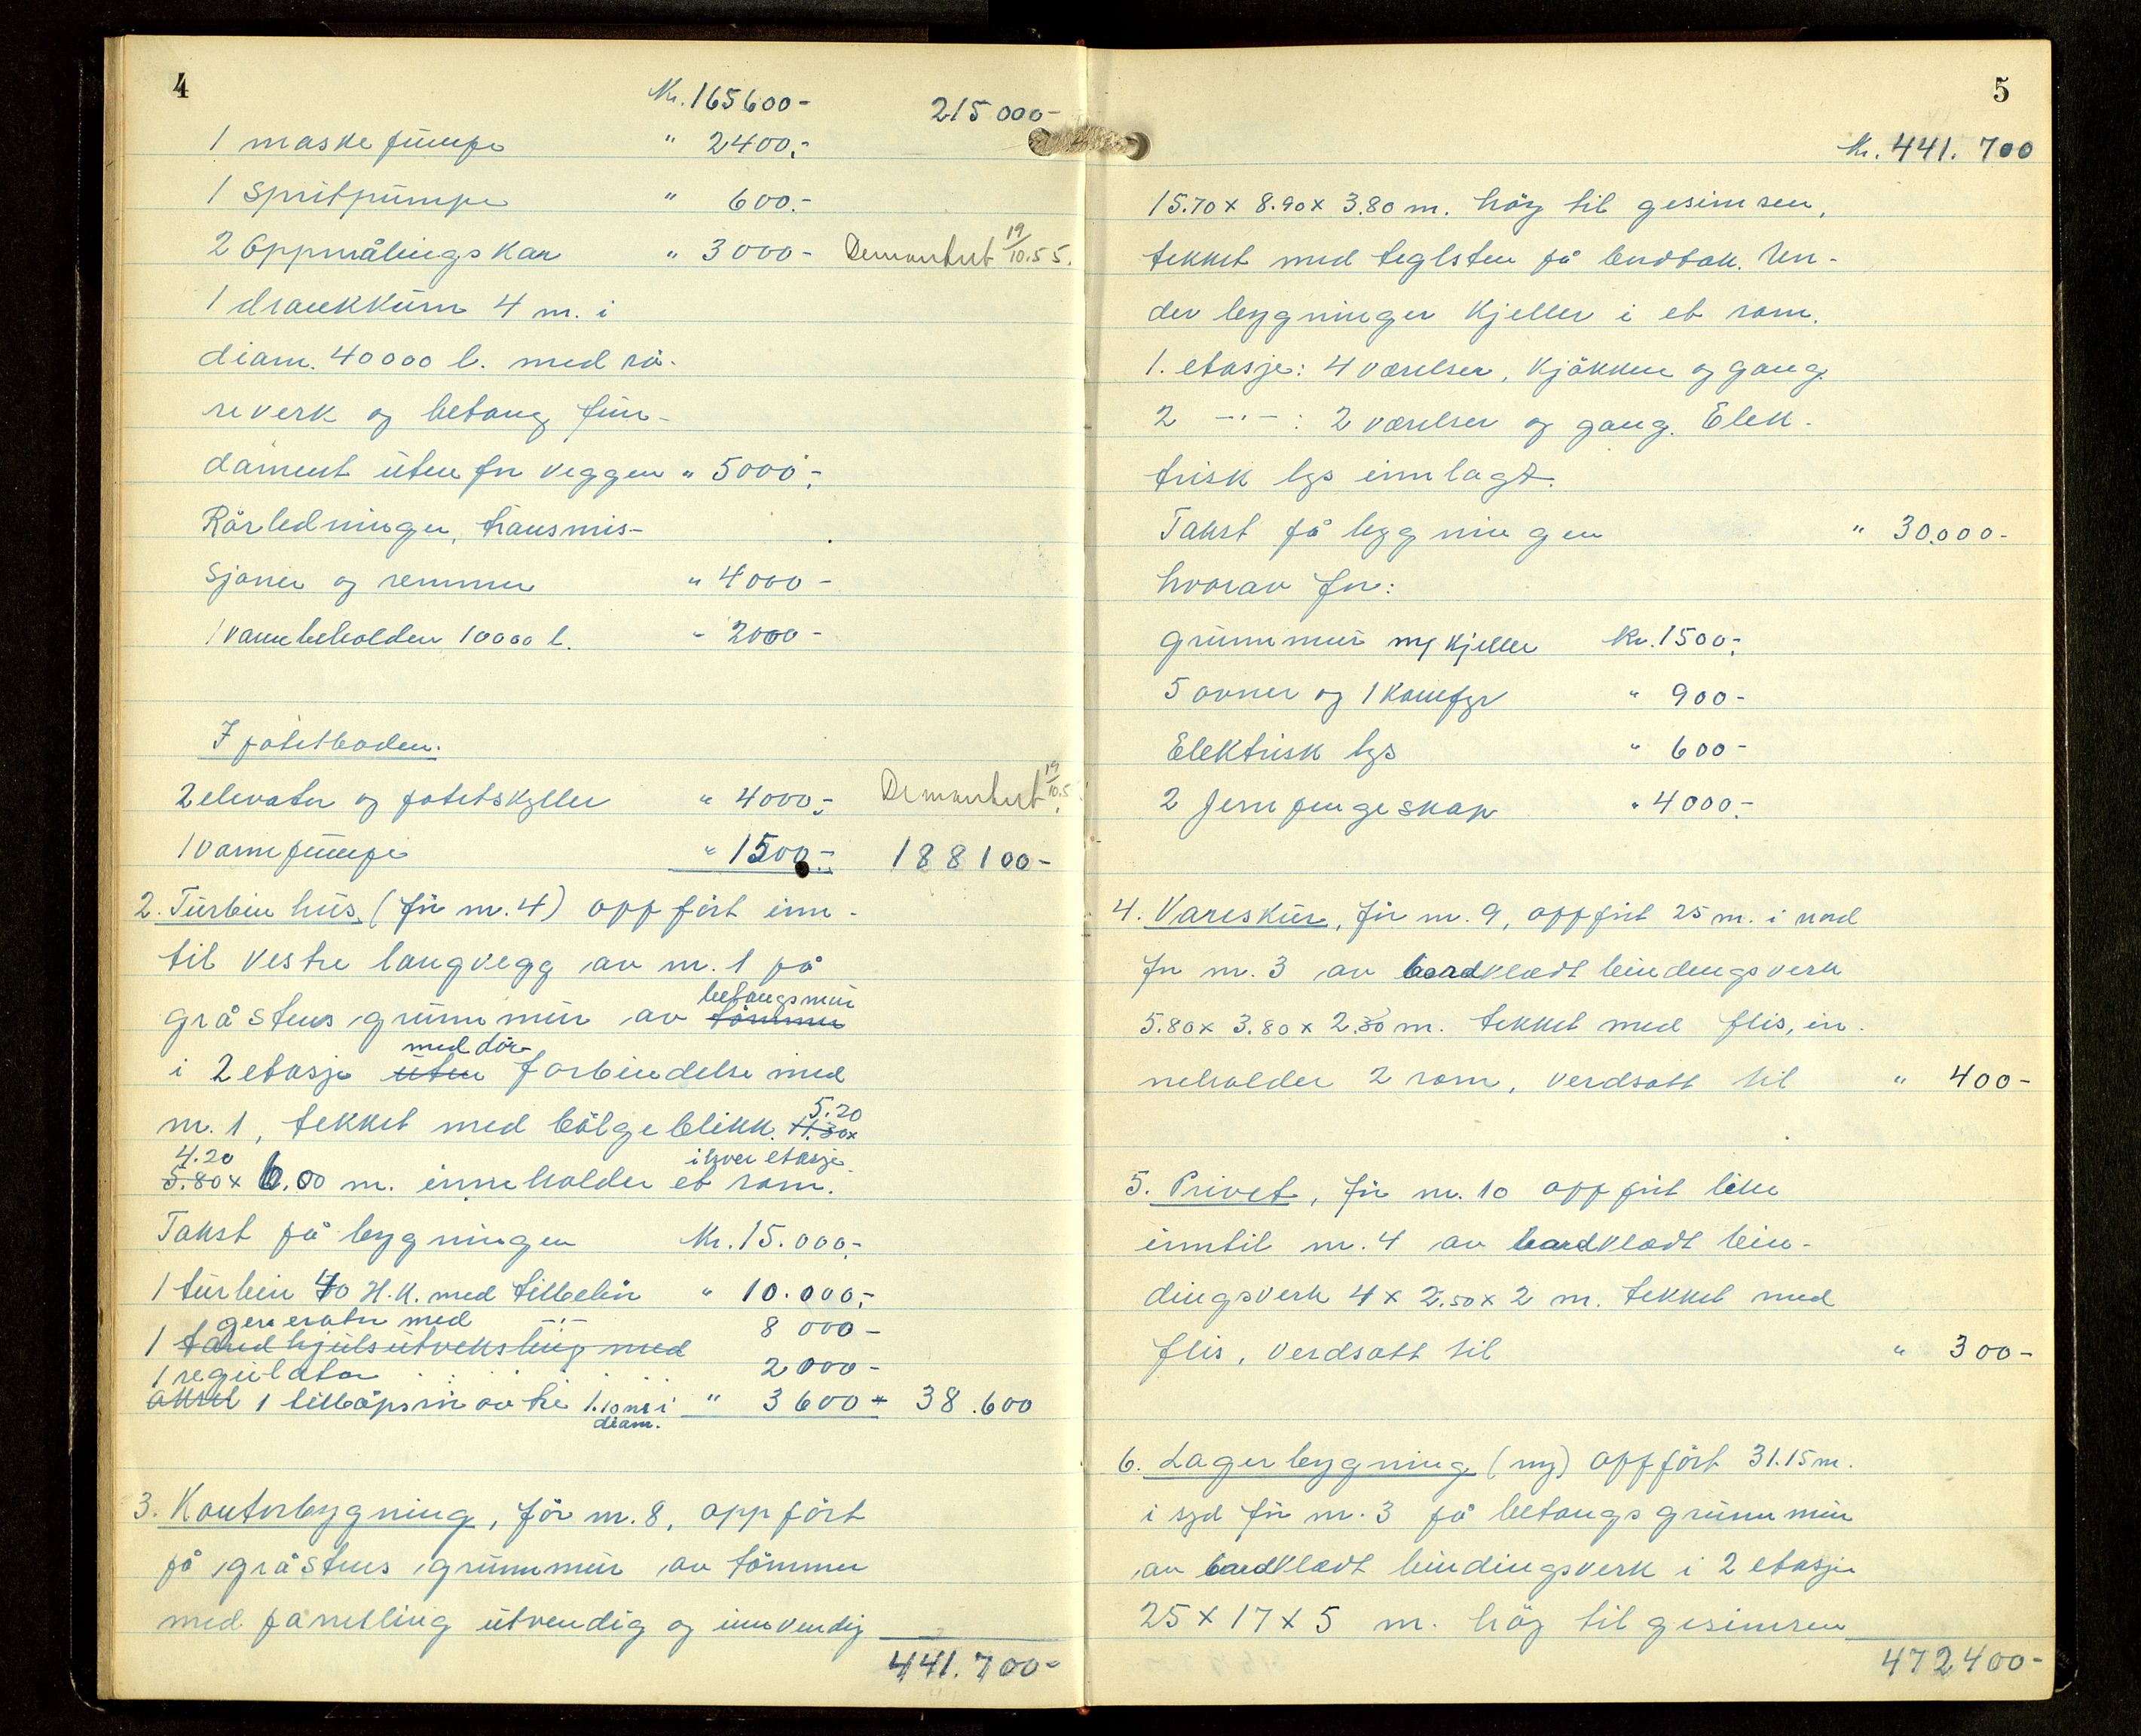 4
Kr. 165600- 215 000-
1 maskepumpe " 2400,-
1 Spritpumpe " 600.-
2 Oppmålingskar " 3000- Demontert 19/10.55.
1 drankkum 4 m. i
diam. 40000 l. med rö-
reverk og betong fun-
dament uten for veggen " 5000,-
Rörledninger, transmis-
sjoner og remmer " 4000-
1 vannbeholder 10000 l. " 2000-
I potetboden.
2 elevator og potetskyller " 4000,- Demontert 19/10.5
1 vannpumpe " 1500,- 188100-
2. Turbinhus (för nr. 4) oppfört inn-
til vestre langvegg av nr. 1 på
betongsmur
gråstens grunnmur av tömmer
med dör-
i 2 etasje uten forbindelse med
5.20
nr. 1, tekket med bölgeblikk. 11.30x
4.20 i hver etasje
5.80 x 6.00 m. inneholder et rom.
Takst på bygningen Kr. 15.000,-
1 turbin 40 H.K. med tilbehör " 10.000,-
generator med -"- 8 000-
1 tandhjulsutveksling med
1 regulator 2000-
aksel 1 tillöpsrör av tre 1.10 m i " 3600- 38.600
diam.
3. Kontorbygning, för nr. 8, oppfört
på gråstens grunnmur av tömmer
med panelling utvendig og innvendig
441.700-
5
Kr. 441.700
15.70 x 8.90 x 3.80 m. höy til gesimsen,
tekket med teglsten på bordtak. Un-
der bygninger kjeller i et rom.
1. etasje: 4 værelser, kjökken og gang.
2 -"- : 2 værelser og gang. Elek-
trisk lys innlagt.
Takst på bygningen " 30.000-
hvorav for:
grunnmur m/ kjeller Kr. 1500,-
5 ovner og 1 komfyr " 900-
Elektrisk lys " 600-
2 Jern pengeskap " 4000,-
4. Vareskur, för nr. 9, oppfört 25 m. i nord
for nr. 3 av bordklædt bindingsverk
5.80 x 3.80 x 2.30 m. tekket med flis, in-
neholder 2 rom, verdsatt til " 400-
5. Privet, för nr. 10 oppfört like
inntil nr. 4 av bordklædt bin-
dingsverk 4 x 2.50 x 2 m. tekket med
flis, verdsatt til " 300-
6. Lagerbygning (ny) oppfört 31.15 m.
i syd för nr. 3 på betongs grunnmur
av bordklædt bindingsverk i 2 etasjer
25 x 17 x 5 m. höy til gesimsen
472400-